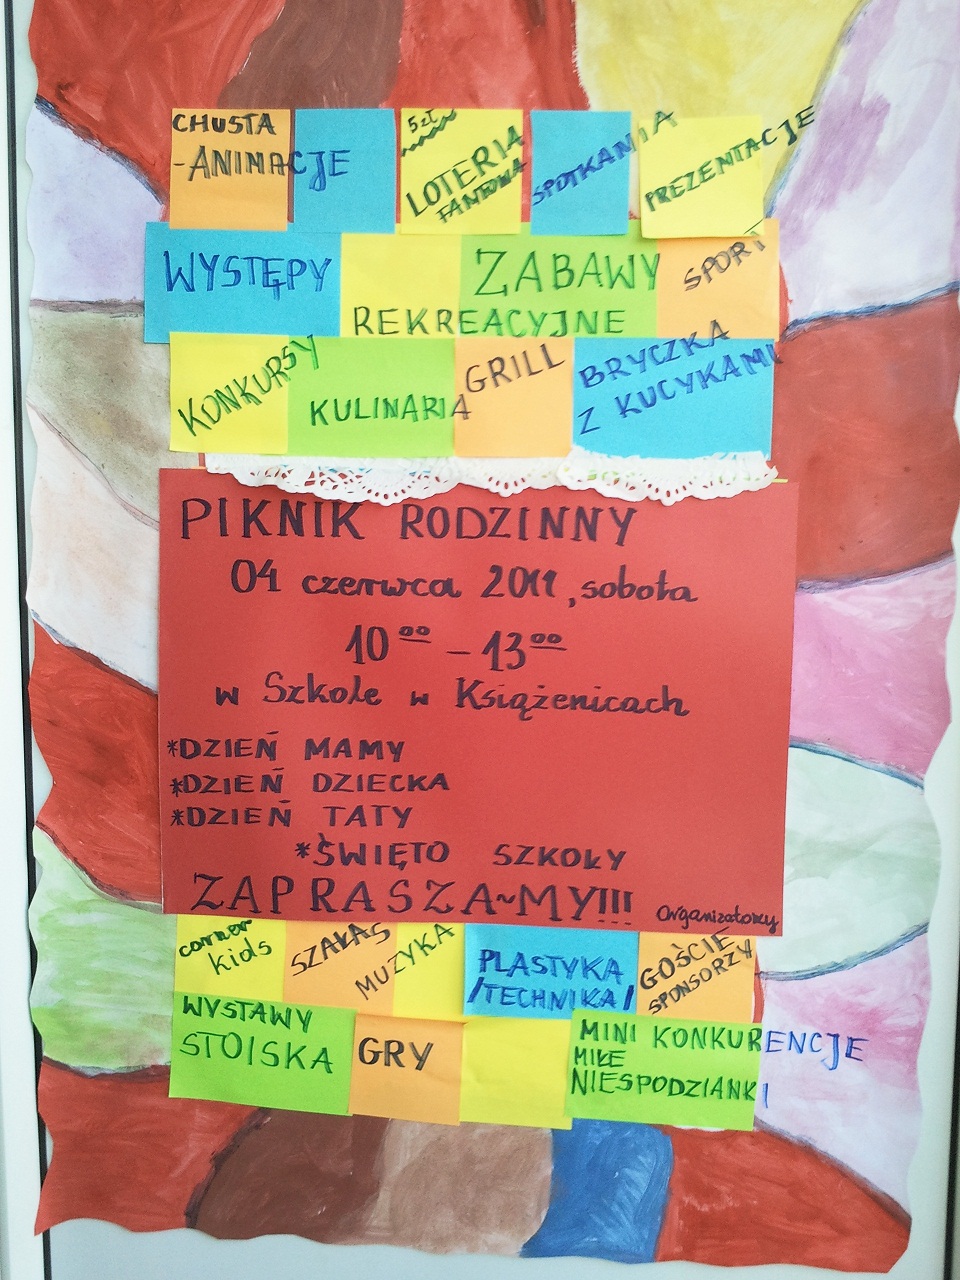 CHUSTA
-ANIMACJE
5zł
LOTERIA
FANTOWA
SPOTKANIA
PREZENTACJE
WYSTĘPY
ZABAWY
REKREACYJNE
SPORT
KONKURSY
KULINARIA
GRILL
BRYCZKA
Z KUCYKAMI
PIKNIK RODZINNY
04 czerwca 2011, sobota
10⁰⁰ – 13⁰⁰
w Szkole w Książenicach
*DZIEŃ MAMY
*DZIEŃ DZIECKA
*DZIEŃ TATY
*ŚWIĘTO SZKOŁY
ZAPRASZA~MY!!!
Organizatorzy
corner
kids
SZAŁAS
MUZYKA
PLASTYKA
/TECHNIKA/
GOŚCIE
SPONSORZY
WYSTAWY
STOISKA
GRY
MINI KONKURENCJE
MIŁE
NIESPODZIANKI